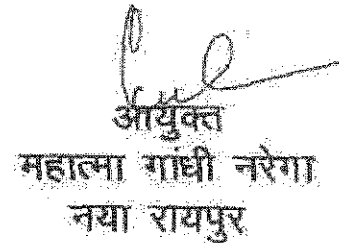 आयुक्त
महात्मा गांधी नरेगा
नया रायपुर